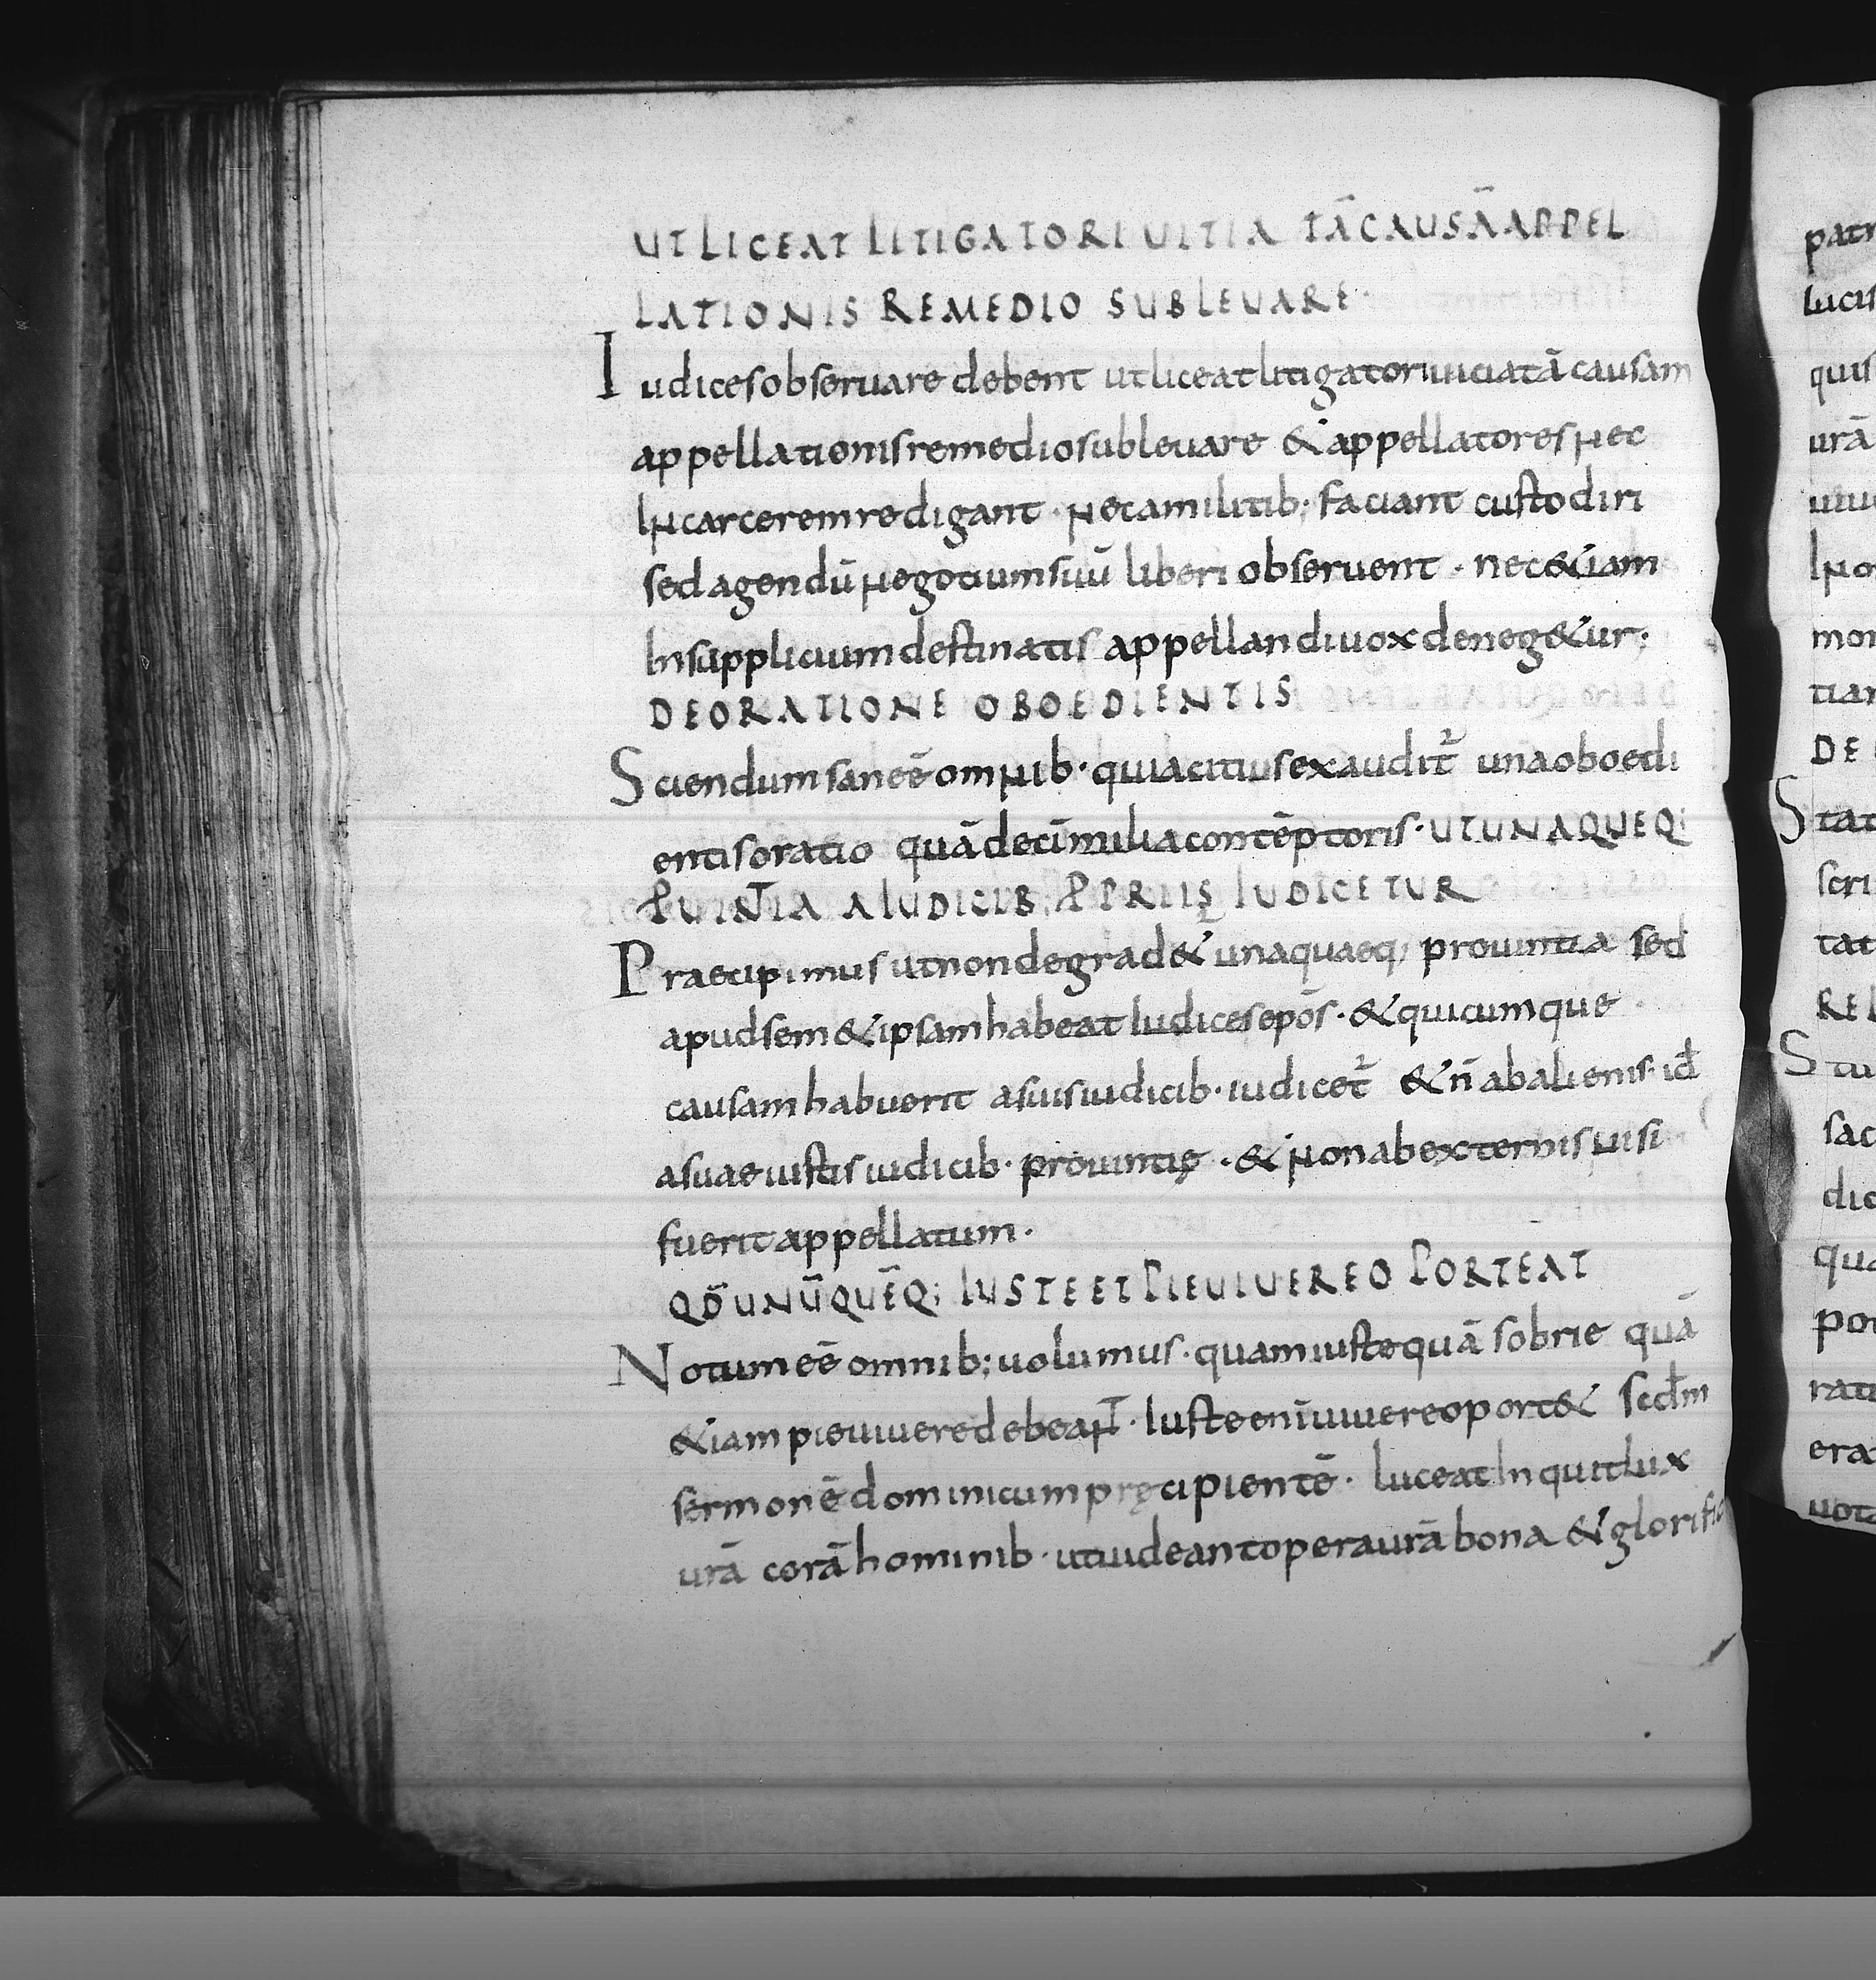 UT LICEAT LITIGATORI UITIATĀ CAUSĀ APPEL
LATIONIS REMEDIO SUBLEUARE·
Iudices obseruare debent ut liceat litigatori uiciatā causam
appellationis remedio subleuare & appellatores Nec
IN carcerem redigant · Nec a militib; faciant custodiri
sed agendū Negotium suū liberi obseruent · nec &iam
In supplicium destinatis appellandi uox deneg&ur;
DE ORATIONE OBOEDIENTIS
Sciendum sane eē omNib· quia citius exaudit᷒ una oboedi
entis oratio quā decī milia contēptoris· UT UNAQUEQ;
ꝒUINTIA A IUDICIB; ꝒPRIIS IUDICETUR
Praecipimus ut non degrad& unaquaeq; prouintia sed
apud sem&ipsam habeat Iudices epōs· & quicumque
causam habuerit a suis iudicib· iudicet᷒ & n̄ ab alienis· id̄
a suae iustis iudicib· prouintię · & Non ab externis Nisi
fuerit appellatum·
QD̄ UNŪQUĒQ; IUSTE ET PIE UIUERE OPORTEAT
Notum eē omnib; uolumus· quam iuste quā sobrie quā
&iam pie uiuere debeaNT· Iuste enī uiuere oport& scd̄m
sermonē dominicum pręcipientē· luceat Inquit lux
urā corā hominib· ut uideant opera urā bona & glorific
patr
lucis
quis
urā
INo
mor
tiar
DE
Stat
scri
tat
REL
sac
die
qua
por
rati
era
uota